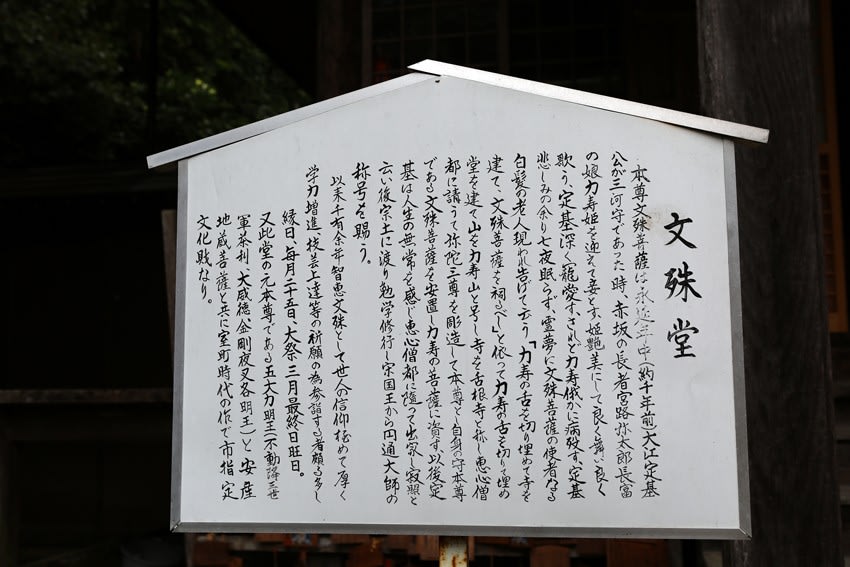 文殊堂
本尊文殊菩薩は永延年中(約千年前)大江定基
公が三河守であった時、赤坂の長者宮路弥太郎長富
の娘力寿姫を迎えて妾とす、姫艶美にして良く舞い良く
歌う、定基深く寵愛す、されど力寿俄かに病歿す、定基
悲しみの余り七夜眠らず、霊夢に文殊菩薩の使者なる
白髪の老人現われ告げて云う「力寿の舌を切り埋めて寺を
建て、文殊菩薩を祠るべし」と依って力寿の舌を切りて埋め
堂を建て山を力寿山と号し寺を舌根寺と称し恵心僧
都に請うて弥陀三尊を彫造して本尊と自身の守本尊
である文殊菩薩を安置し力寿の菩薩に資す、以後定
基は人生の無常を感じ恵心僧都に随って出家し寂照と
云い後宗土に渡り勉学修行し宋国王から円通大師の
称号を賜う。
以来千有余年智恵文殊として世人の信仰極めて厚く
学力増進、技芸上達等の祈願の為参詣する者頗る多し
縁日、毎月二十五日、大祭三月最終日旺日。
又此堂の元本尊である五大力明王(不動降三世
軍荼利、大威徳、金剛夜叉各明王)と安産
地蔵菩薩と共に室町時代の作で市指定
文化財なり。